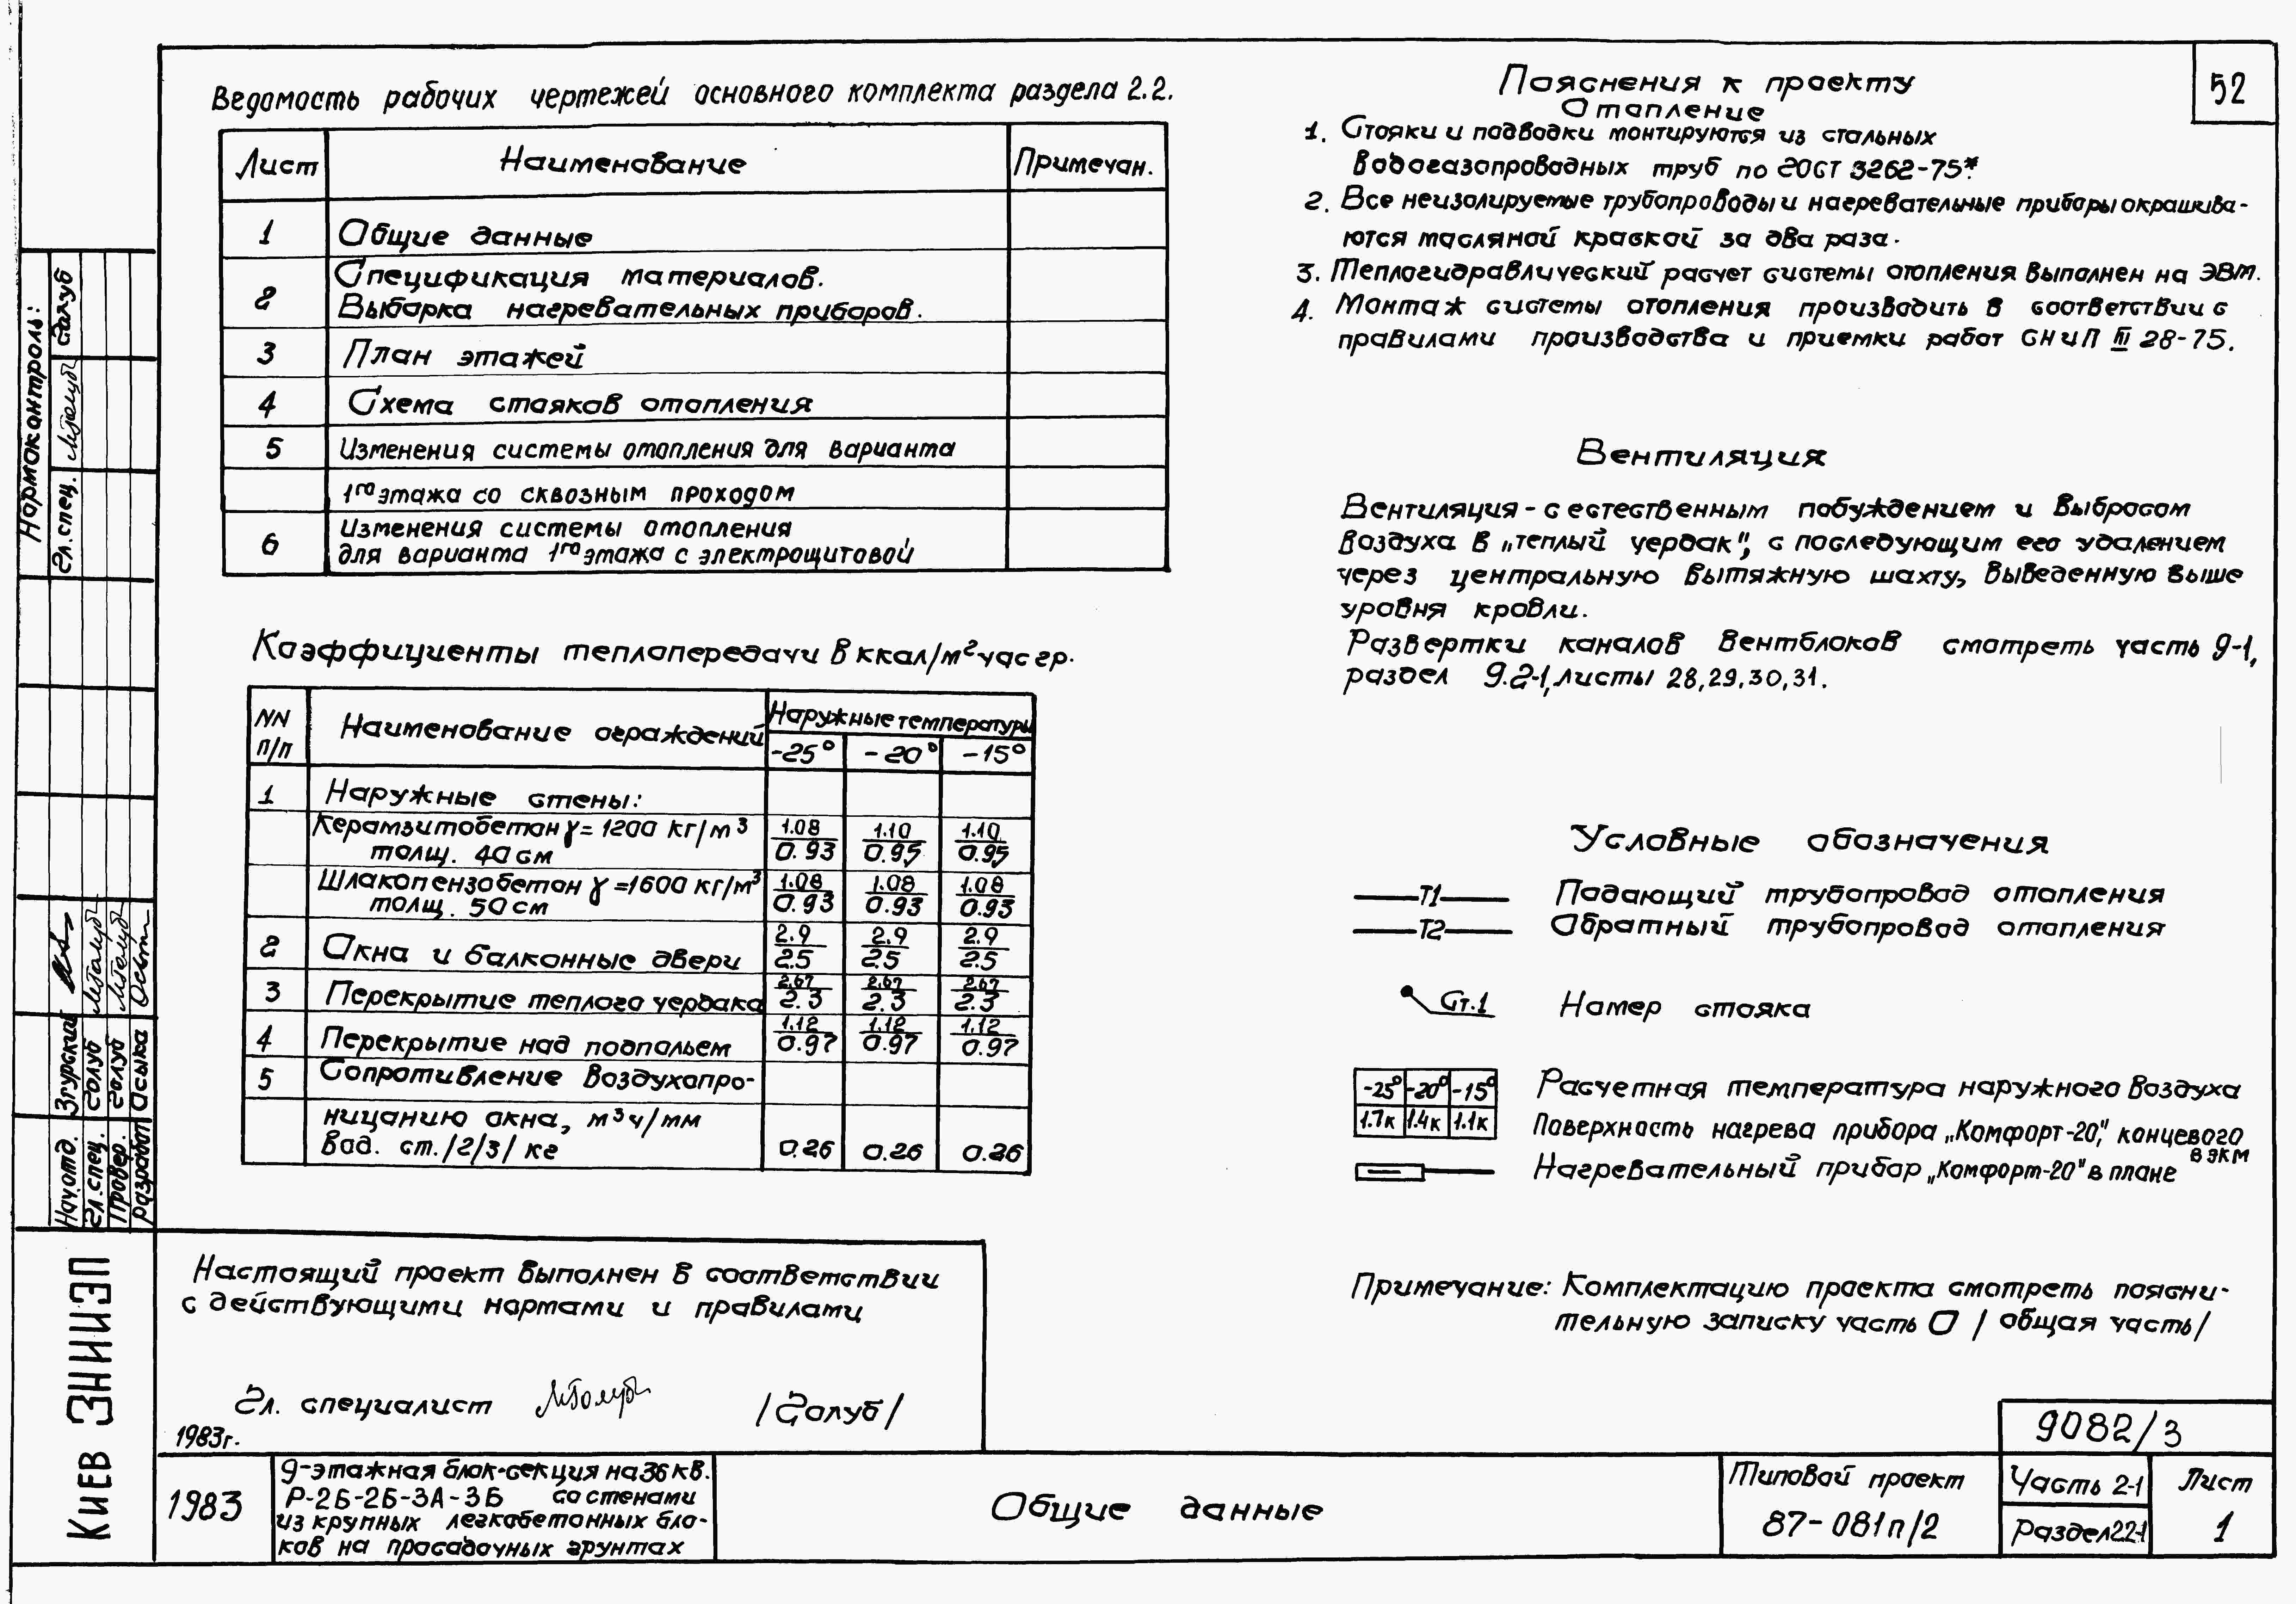 52
Ведомость рабочих чертежей основного комплекта раздела 2.2.
Лист Наименование Примечан.
1 Общие данные
2 Спецификация материалов.
Выборка нагревательных приборов.
3 План этажей
4 Схема стояков отопления
5 Изменения системы отопления для варианта
1го этажа со сквозным проходом
6 Изменения системы отопления
для варианта 1го этажа с электрощитовой
Коэффициенты теплопередачи в ккал/м² час гр.
NN п/п Наименование ограждений Наружные температуры
-25° -20° -15°
1 Наружные стены:
Керамзитобетон γ=1200 кг/м³ 1.08 1.10 1.10
толщ. 40 см 0.93 0.95 0.95
Шлакопензобетон γ=1600 кг/м³ 1.08 1.08 1.08
толщ. 50 см 0.93 0.93 0.93
2 Окна и балконные двери 2.9 2.9 2.9
2.5 2.5 2.5
3 Перекрытие теплого чердака 2.67 2.67 2.67
2.3 2.3 2.3
4 Перекрытие над подпольем 1.12 1.12 1.12
0.97 0.97 0.97
5 Сопротивление воздухопро-
ницанию окна, м³ч/мм
вод. ст./2/3/ кг 0.26 0.26 0.26
Настоящий проект выполнен в соответствии
с действующими нормами и правилами
Гл. специалист /Голуб/
1983г.
Пояснения к проекту
Отопление
1. Стояки и подводки монтируются из стальных
водогазопроводных труб по ГОСТ 3262-75*.
2. Все неизолируемые трубопроводы и нагревательные приборы окрашива-
ются масляной краской за два раза.
3. Теплогидравлический расчет системы отопления выполнен на ЭВМ.
4. Монтаж системы отопления производить в соответствии с
правилами производства и приемки работ СНиП III 28-75.
Вентиляция
Вентиляция - с естественным побуждением и выбросом
воздуха в „теплый чердак", с последующим его удалением
через центральную вытяжную шахту, выведенную выше
уровня кровли.
Развертки каналов вентблоков смотреть часть 9-1,
раздел 9.2-1, листы 28,29,30,31.
Условные обозначения
Т1 Подающий трубопровод отопления
Т2 Обратный трубопровод отопления
Ст.1 Номер стояка
-25° -20° -15° Расчетная температура наружного воздуха
1.7к 1.4к 1.1к Поверхность нагрева прибора „Комфорт-20", концевого
в экм
Нагревательный прибор „Комфорт-20" в плане
Примечание: Комплектацию проекта смотреть поясни-
тельную записку часть 0 / общая часть/
9082/3
1983
9-этажная блок-секция на 36 кв.
Р-2Б-2Б-3А-3Б со стенами
из крупных легкобетонных бло-
ков на просадочных грунтах
Общие данные
Типовой проект
87-081п/2
Часть 2-1
Раздел 2.2-1
Лист
1
Нормоконтроль:
Гл.спец. Голуб
Нач.отд. Згурский
Гл.спец. Голуб
Провер. Голуб
Разработ Осыка
Киев ЗНИИЭП